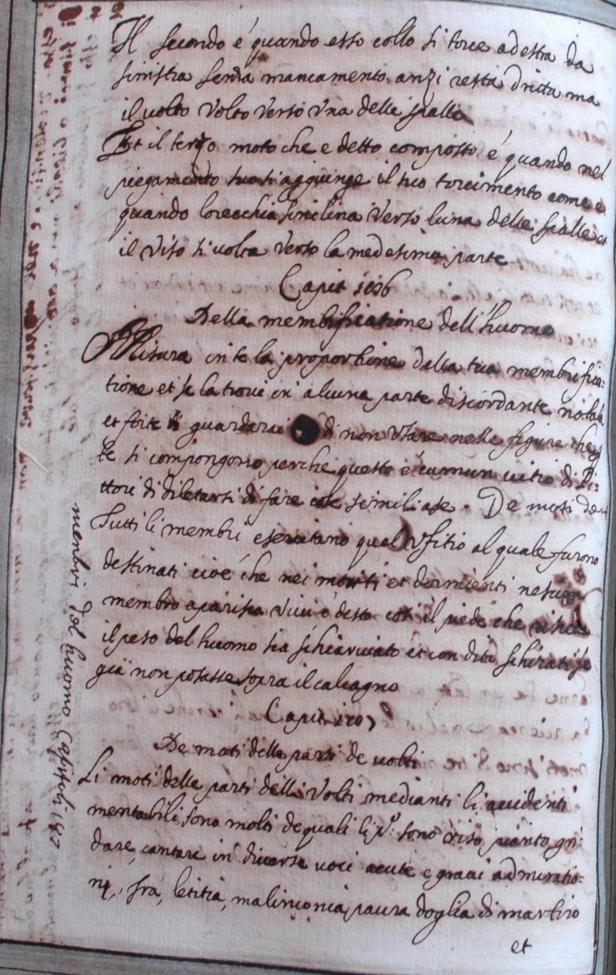 Il secondo é quando esso collo si torce a destra da
sinistra senza mancamento anzi resta dritta ma
il volto volto verso una delle spalle
Et il terzo moto che e detto composto é quando nel
piegamento suo si aggiunge il suo torcimento come e
quando lorecchia sinclina verso luna delle spalle et
il viso si volta verso la medesima parte
Capit
Della membrificatione dell'huomo
Misura in te la proportione della tua membrifica
tione et se la trovi in alcuna parte discordante notala
et forte ti guardarai di non usare nelle figure che p
te si compongono perche questo é comun vitio di Pi-
ttori di diletarsi di fare cose simili a se. De moti de
Tutti li membri esercitano quel ufitio al quale furono
destinati cioé che nei morti et dormienti nesun
membro aparisca vivo é desto cosi il piede che riceve
il peso del huomo sia schiacciato et con dita schizati se
gia non posasse sopra il calcagno
Capit
De moti delle parti de volti
Li moti delle parti delli Volti medianti li accidenti
mentabili, sono molti de quali li p.i sono é riso pianto, gri-
dare, cantare in diverse voci acute e gravi admiratio-
ni, ira, letitia, malinconia, paura doglia di martiro
et
membri del huomo Capitoli